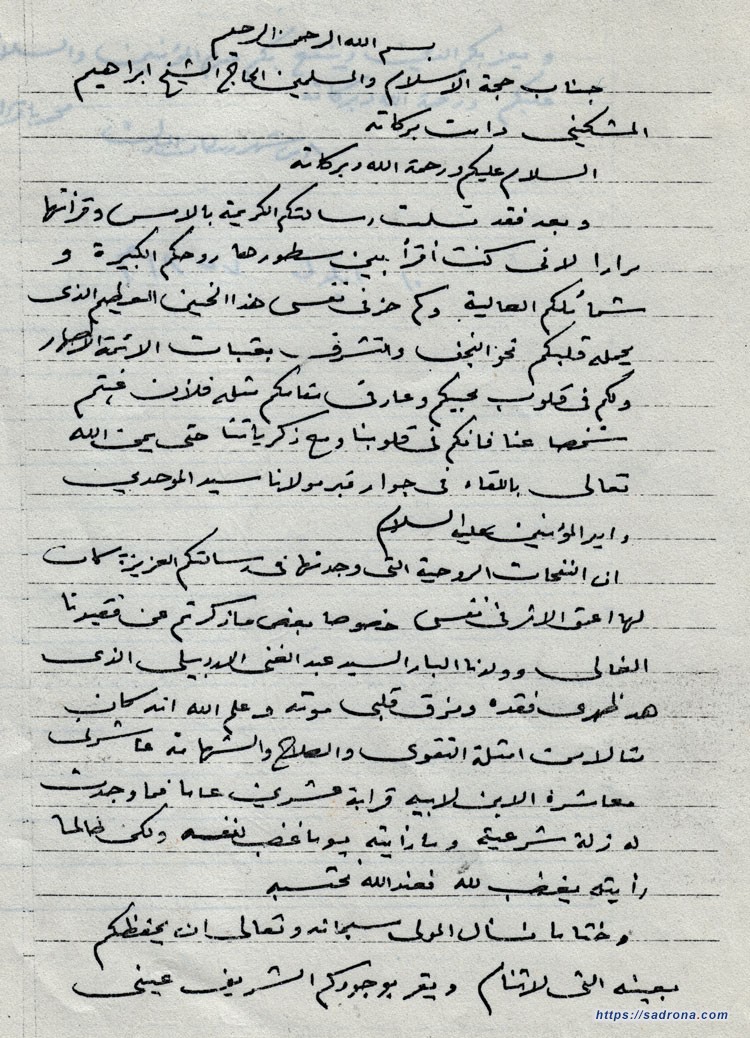 بسم الله الرحمن الرحيم
جناب حجة الاسلام والمسلمين الحاج الشيخ ابراهيم
المشكيني دامت بركاته
السلام عليكم ورحمة الله وبركاته
وبعد فقد تسلمت رسالتكم الكريمة بالامس وقرأتها
مرارا لانى كنت أقرأ بين سطورها روحكم الكبيرة و
شمائلكم العالية وكم حز فى نفسى هذا الحنين العظيم الذى
يحمله قلبكم نحو النجف والتشرف بعتبات الائمة الاطهار
ولكم فى قلوب محبيكم وعارفى مقامكم مثله فلان غبتم
شخصا عنا فانكم فى قلوبنا ومع ذكرياتنا حتى يمن الله
تعالى باللقاء فى جوار قبر مولانا سيد الموحدين
وامير المؤمنين عليه السلام
ان النفحات الروحية التى وجدتها فى رسالتكم العزيزة كان
لها اعمق الاثر فى نفسى خصوصا بعض ما ذكرتم عن فقيدنا
الغالى وولدنا البار السيد عبد الغنى الاردبيلى الذى
هد ظهرى فقده ومزق قلبى موته وعلم الله انه كان
مثالا من امثلة التقوى والصلاح والشهامة عاشرنى
معاشرة الابن لابيه قرابة عشرين عاما فما وجدت
له زلة شرعية وما رأيته يوما غضب لنفسه ولكن طالما
رأيته يغضب لله فعند الله نحتسبه
وختاما نسأل المولى سبحانه وتعالى ان يحفظكم
بعينه التى لا تنام ويقر بوجودكم الشريف عينى
https://sadrona.com